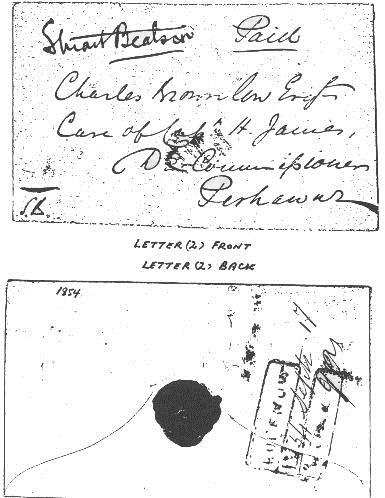 Stuart Beatson Paid
Charles Brownlow Esqr
Care of Capt H. James,
Dy Commissioners
Peshawur
S.B.
LETTER (2) FRONT
LETTER (2) BACK
1854
17